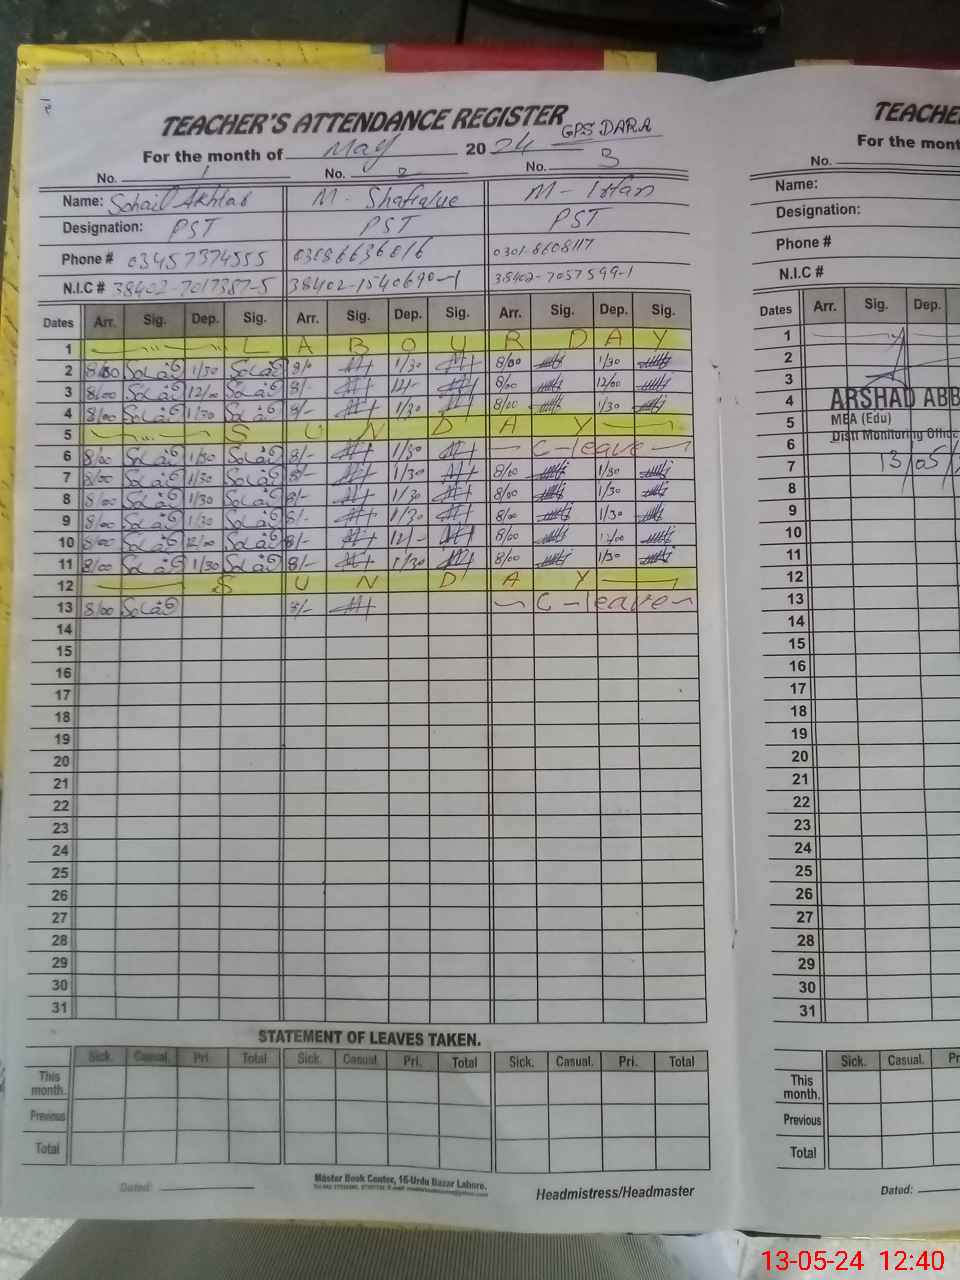 TEACHER'S ATTENDANCE REGISTER
GPS DARA
For the month of May 2024
No. 1 No. 2 No. 3
Name: Sohail Akhtar M- Shafique M- Irfan
Designation: PST PST PST
Phone # 03457374555 03086636016 0301-8608117
N.I.C # 38402-7017387-5 38402-1540690-1 38402-7057599-1
Dates Arr. Sig. Dep. Sig. Arr. Sig. Dep. Sig. Arr. Sig. Dep. Sig.
1 LABOUR DAY
2 8/00 1/30 8/- 1/30 8/00 1/30
3 8/00 12/00 8/- 12/- 8/00 12/00
4 8/00 1/30 8/- 1/30 8/00 1/30
5 SUNDAY
6 8/00 1/30 8/- 1/30 C-leave
7 8/00 1/30 8/- 1/30 8/00 1/30
8 8/00 1/30 8/- 1/30 8/00 1/30
9 8/00 1/30 8/- 1/30 8/00 1/30
10 8/00 12/00 8/- 12/- 8/00 12/00
11 8/00 1/30 8/- 1/30 8/00 1/30
12 SUNDAY
13 8/00 8/- C-leave
14
15
16
17
18
19
20
21
22
23
24
25
26
27
28
29
30
31
STATEMENT OF LEAVES TAKEN.
Sick. Casual. Pri. Total Sick. Casual. Pri. Total Sick. Casual. Pri. Total
This month.
Previous
Total
Dated:
Master Book Center, 16-Urdu Bazar Lahore.
Headmistress/Headmaster
TEACHE
For the mont
No.
Name:
Designation:
Phone #
N.I.C #
Dates Arr. Sig. Dep.
1
2
3
4 ARSHAD ABB
5 MEA (Edu)
6 Distt Monitoring Office
7 13/05/
8
9
10
11
12
13
14
15
16
17
18
19
20
21
22
23
24
25
26
27
28
29
30
31
Sick. Casual. Pr
This month.
Previous
Total
Dated:
13-05-24 12:40